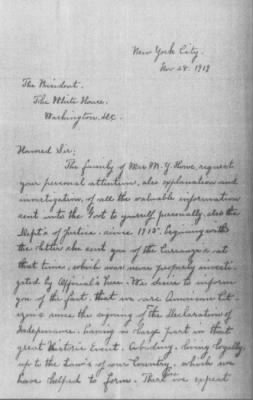 New York City.
Nov 28. 1919
The President.
The White House.
Washington, D.C.
Honored Sir:
The family of Mrs M. Y. Howe, request
your personal attention, also explanation and
investigation, of all the valuable information
sent into the Govt to yourself personally, also the
Dept's of Justice, since 1915. Begining with
the letter she sent you of the Carranza at
that time, which was never properly investi
gated by Official's here. We desire to inform
you of the fact that we are American Cit
izens since the signing of the Declaration of
Independance, having a large part in that
great Historic Event. Abiding, living loyally,
up to the Law's of our Country, which we
have helped to form. There we repeat